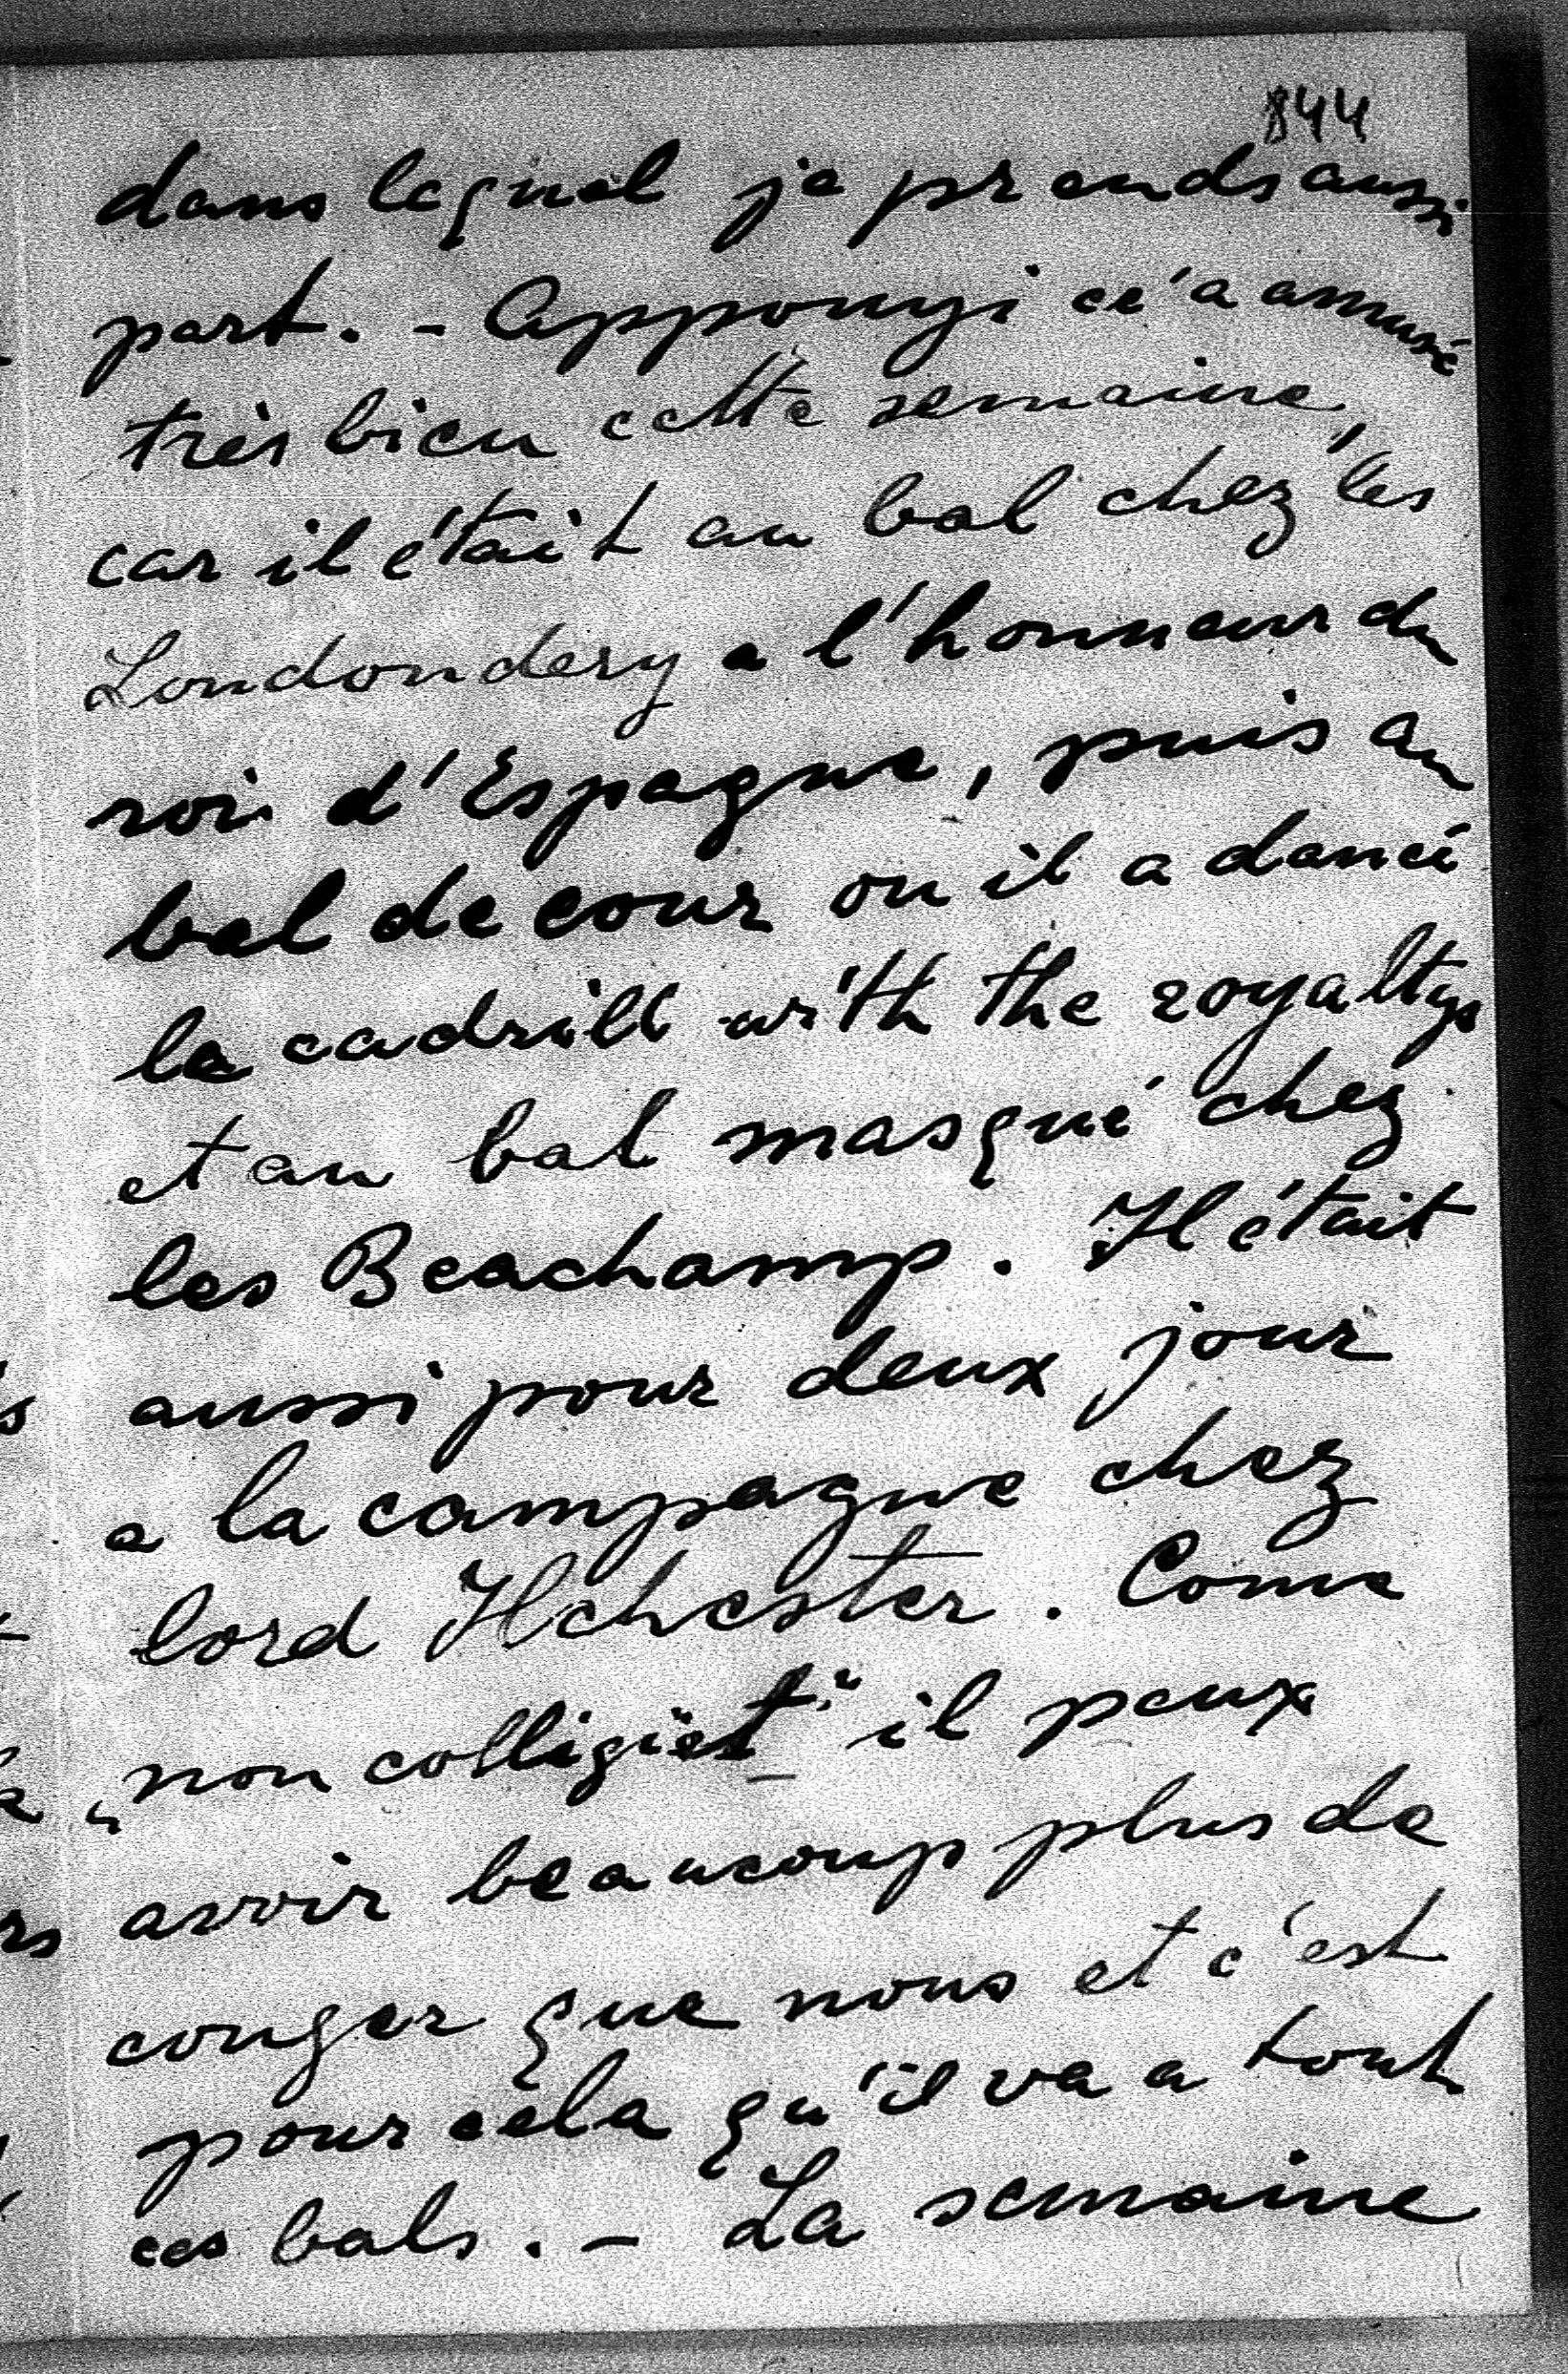 844
dans lequel je prends aussi
part. - Apponyi ce'a amusé
très bien cette semaine,
car il était au bal chez les
Londondery a l'honneur du
roi d'Espagne, puis au
bal de cour ou il a dancé
la cadrill with the royaltys
et au bal masqué chez
les Beachamp. Il était
aussi pour deux jour
a la campagne chez
lord Ilchester. Come
„non colligiet" il peux
avoir beaucoup plus de
conger que nous et c'est
pour cela qu'il va a tout
ces bals. - La semaine